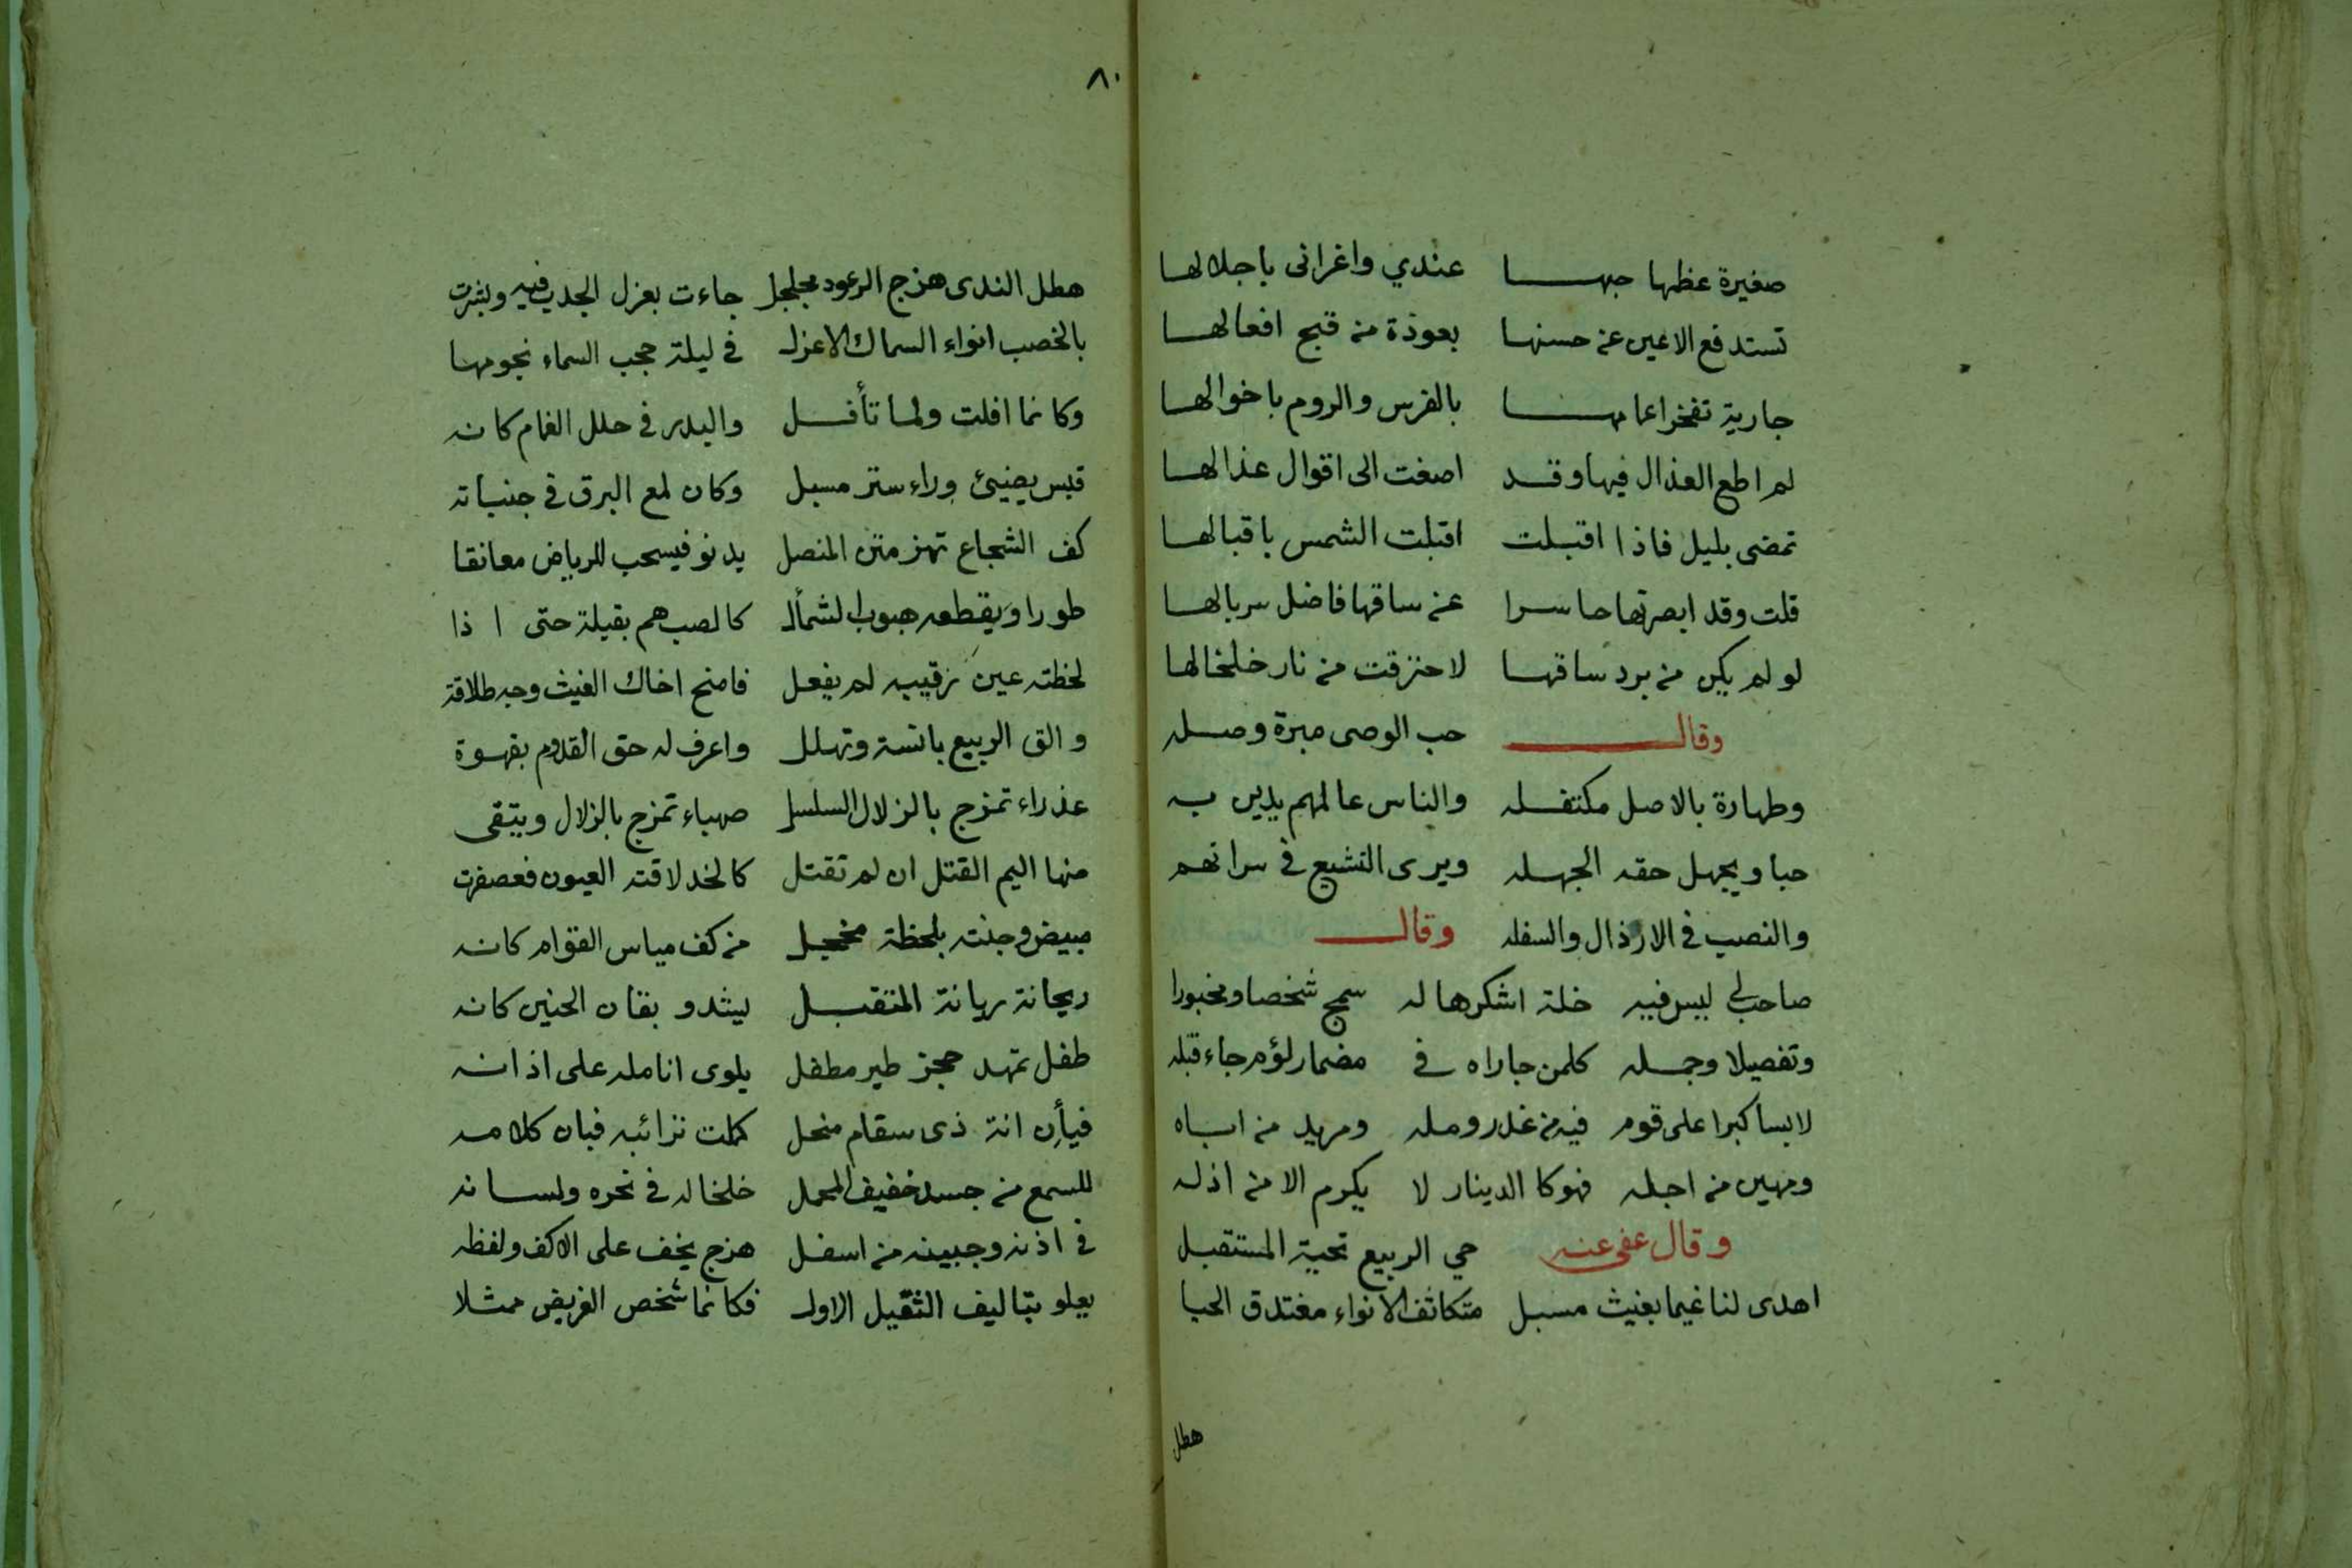 صغيرة عظمها حبهـــا عندي واغرانى باجلالهـا
تستدفع الاعين عن حسنهـا بعوذة من قبح افعالهـا
جارية تفخر اعمامهـــا بالفرس والروم باخوالهـا
لم اطع العذال فيها وقـد اصغت الى اقوال عذالهـا
تمضى بليل فاذا اقبلت اقبلت الشمس باقبالهـا
قلت وقد ابصرتها حاسرا عن ساقها فاضل سربالهـا
لو لم يكن من برد ساقهـا لاحترقت من نار خلخالها
وقالـــ حب الوصى مبرة وصـله
وطهارة بالاصل مكتفـله والناس عالمهم يدين بـه
حبا ويجهل حقه الجهـله ويرى التشيع فى سراتهم
والنصب فى الارذال والسفله وقالـــ
صاحب لى ليس فيه خلة اشكرها له سمج شخصا ومخبورا
وتفصيلا وجمـله كلمن جاراه فى مضمار لؤم جاء قبله
لابسا كبرا على قوم فيه من غدر ومله ومريد من اباه
ومهين من اجله فهو كالدينار لا يكرم الا من اذله
وقال عفى عنه حي الربيع تحية المستقبـل
اهدى لنا غيما بغيث مسبـل متكاثف الانواء مغتدق الحيا
هطل
٨٠
هطل الندى هزج الرعود مجلجل جاءت بعزل الجدب فيه وبشرت
بالخصب انواء السماك الاعزل فى ليلة حجب السماء نجومهـا
وكانما افلت ولما تأفـــل والبدر فى حلل الغمام كانه
قبس يضيئ وراء ستر مسبل وكان لمع البرق فى جنباته
كف الشجاع تهز متن المنصل يدنو فيسحب للرياض معانقا
طورا ويقطعه هبوب الشمأل كالصب هم بقبلة حتى اذا
لحظته عين رقيبه لم يفعل فامنح اخاك الغيث وجه طلاقة
والق الربيع بانسة وتهلل واعرف له حق القدوم بقهـوة
عذراء تمزج بالزلال السلسل صهباء تمزج بالزلال ويتقى
منها اليم القتل ان لم تقتل كالخد لاقته العيون فعصفرت
مبيض وجنته بلحظة مخجل من كف مياس القوام كانه
ريحانة ريانة المتقبـل يشدو بقان الحنين كانه
طفل تمهد حجز طير مطفل يلوى انامله على اذانـه
فيأن انة ذى سقام منحل كملت ترائبه فبان كلامـه
للسمع من جسد خفيف المحمل خلخاله فى نحره ولسـانه
فى اذنه وجبينه من اسفل هزج يخف على الاكف ولفظه
يعلو بتاليف الثقيل الاول فكانما شخص الغريض ممثلا